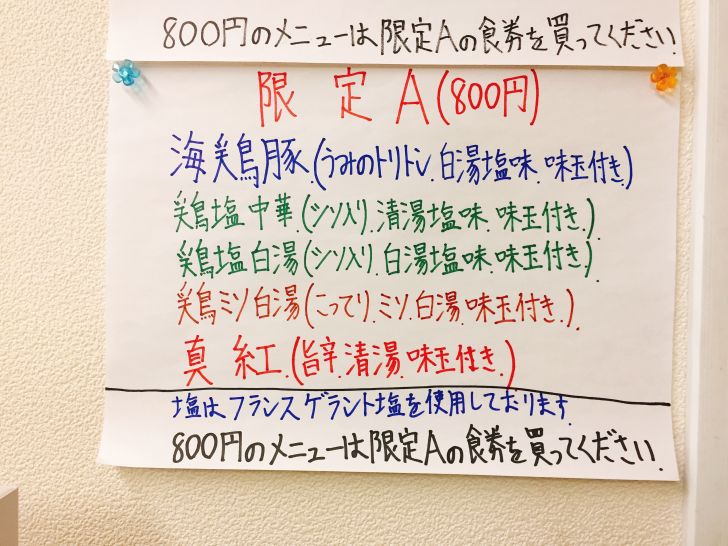 800円のメニューは限定Aの食券を買ってください.
限定A(800円)
海鶏豚.(うみのトリトン.白湯塩味.味玉付き)
鶏塩中華.(シソ入り.清湯塩味.味玉付き.)
鶏塩白湯(シソ入り.白湯塩味.味玉付き.)
鶏ミソ白湯(こってり.ミソ.白湯.味玉付き.)
真紅.(旨辛.清湯.味玉付き.)
塩はフランスゲラント塩を使用しております.
800円のメニューは限定Aの食券を買ってください.